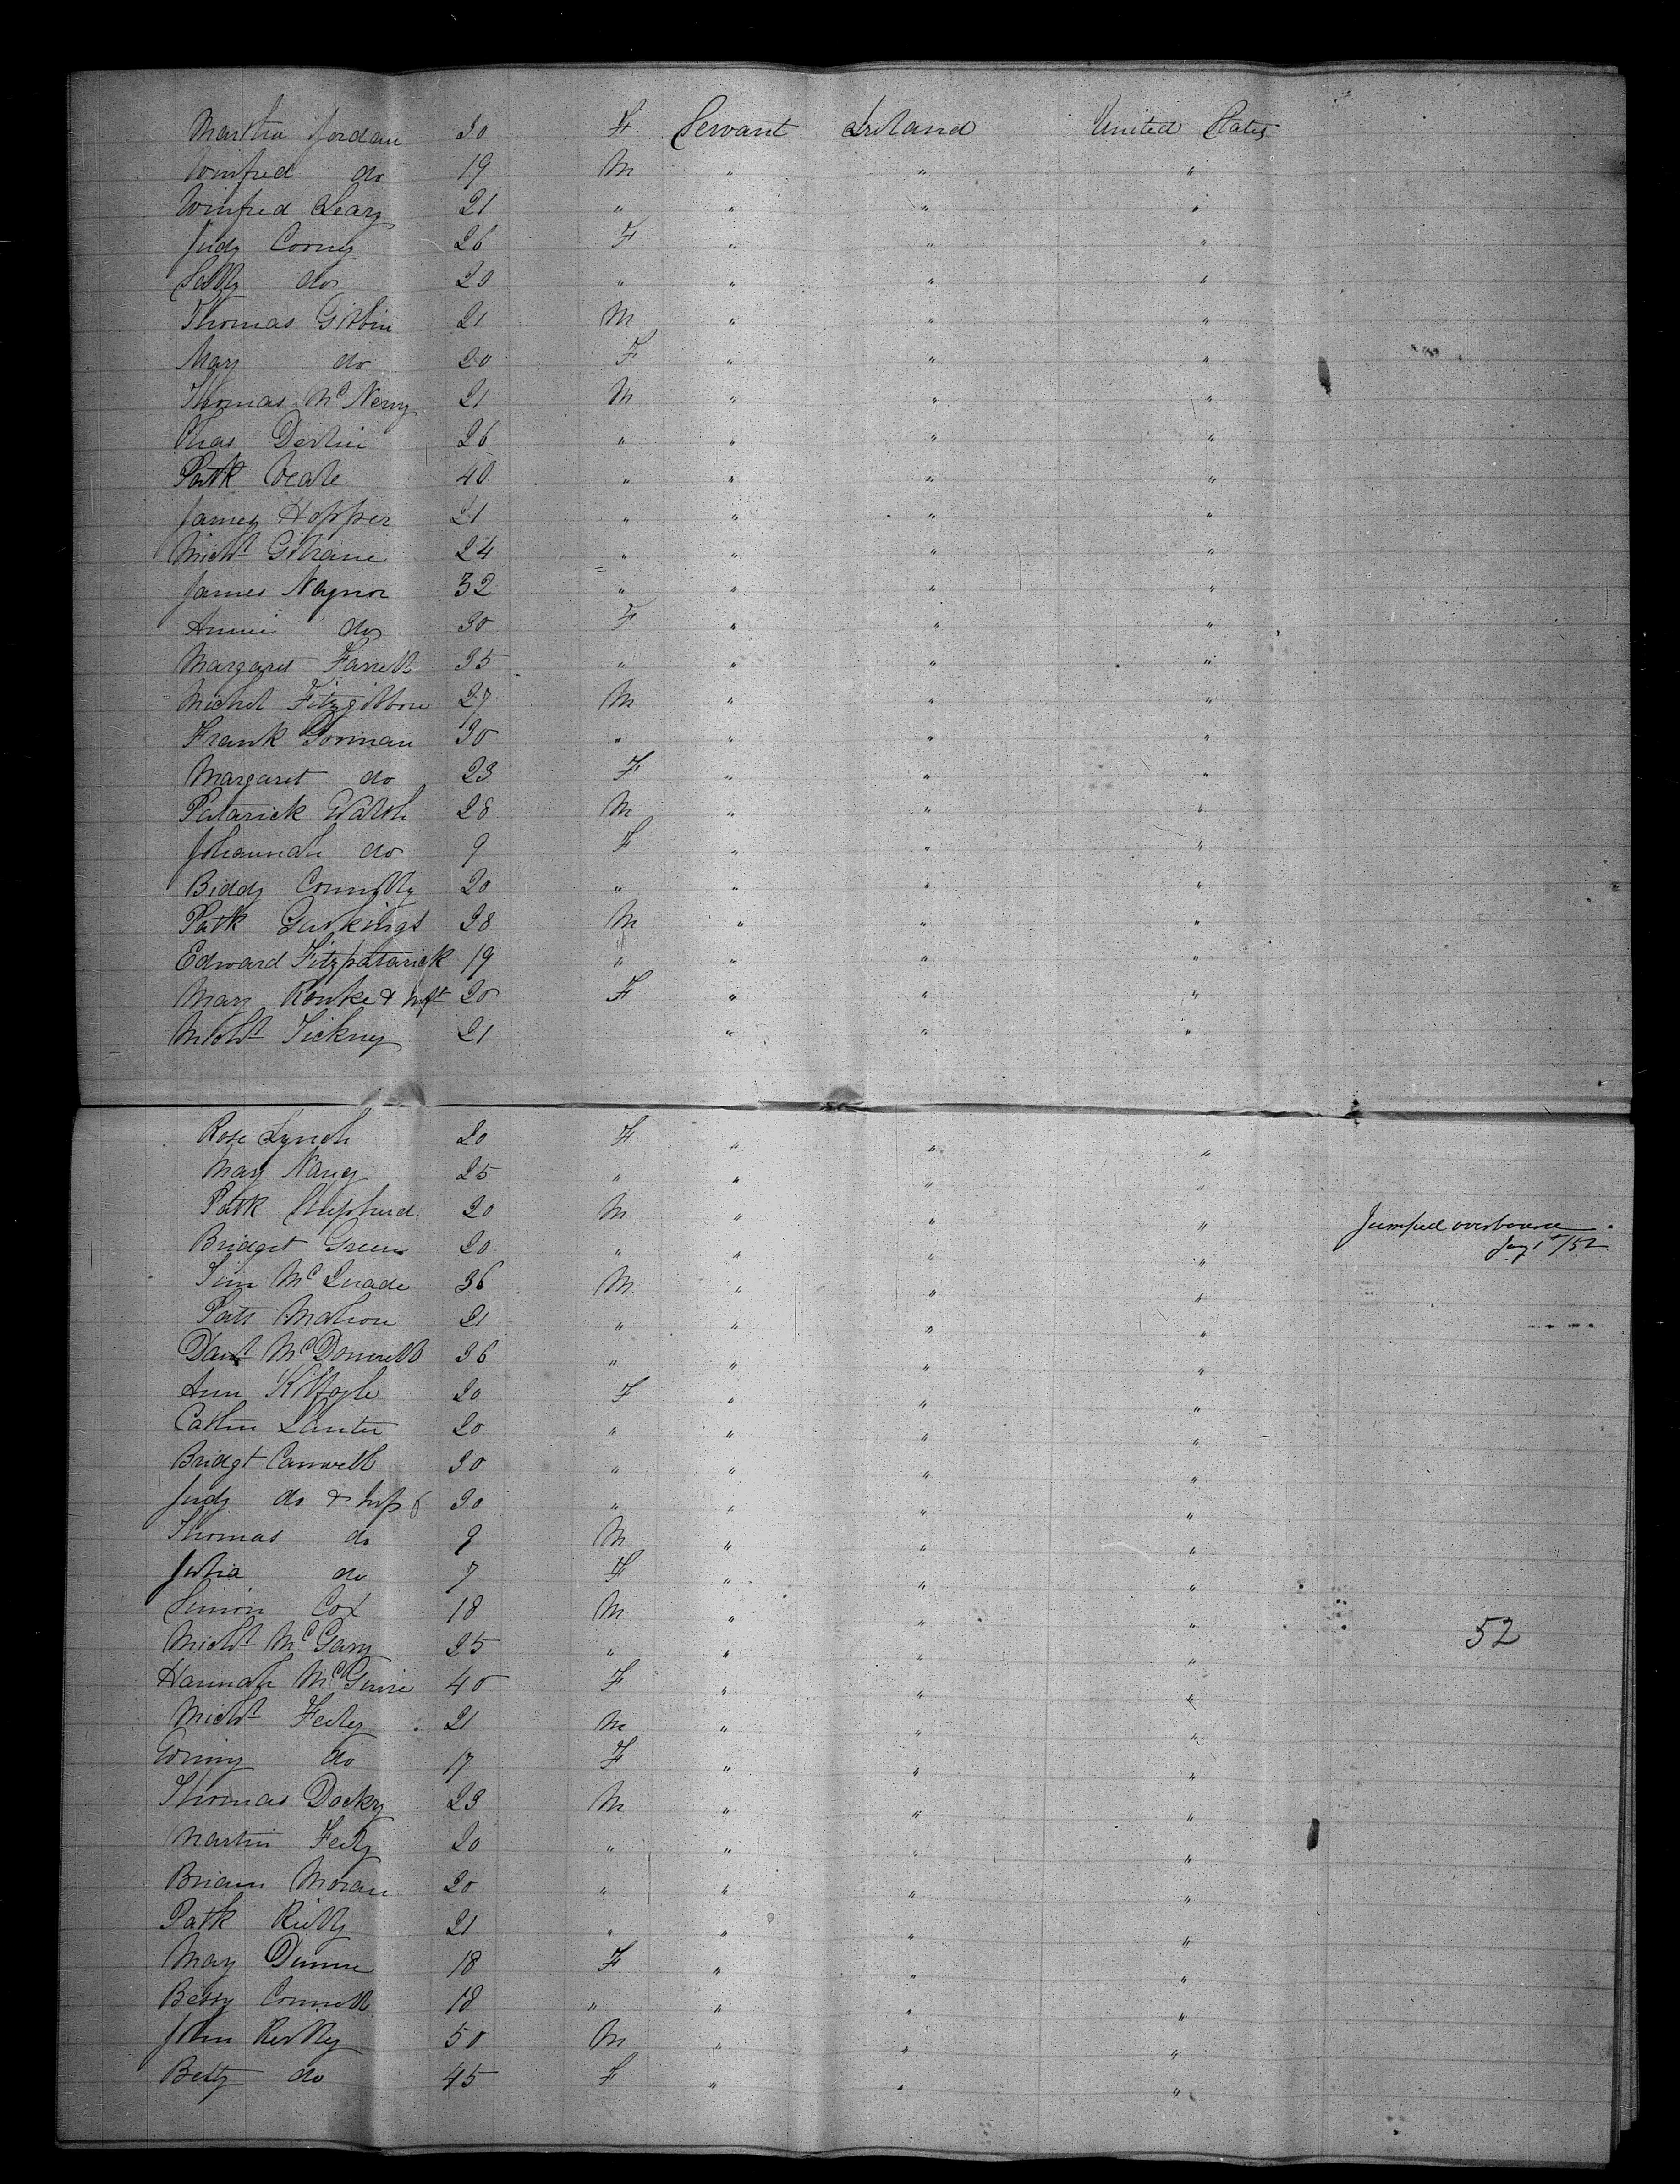 Martha Jordan 20 F Servant Ireland United States
Winfred do 19 M " " "
Winfred Leary 21 " " " "
Judy Corney 26 F " " "
Sally do 20 " " " "
Thomas Gibbin 21 M " " "
Mary do 20 F " " "
Thomas McNerny 21 M " " "
Chas Devlin 26 " " " "
Patk 40 " " " "
James Hopper 21 " " " "
Michl Gilrane 24 " " " "
James Naynor 32 " " " "
Annie do 30 F " " "
Margaret Farrell 35 " " " "
Michel Fitzgibbon 27 M " " "
Frank Gorman 30 " " " "
Margaret do 23 F " " "
Patarick Walsh 28 M " " "
Johannah do 9 F " " "
Biddy Connolly 20 " " " "
Patk 38 M " " "
Edward Fitzpatarick 19 " " " "
Mary Rourke & Inft 20 F " " "
Michl Tickney 21 " " "
Rose Lynch 20 F " " "
Mary Nancy 25 " " " "
Patk Shepherd 20 M " " " Jumped overboard
Bridget Green 20 " " " " Jany 1st/52
Tim McQuade 36 M " " "
Patt Mahon 21 " " " "
Danl McDonnell 36 " " " "
Ann Kilfoyle 20 F " " "
Cathn Lanter 20 " " " "
Bridgt Canwell 30 " " " "
Judy do & Inf 30 " " " "
Thomas do 9 M " " "
Julia do 7 F " " "
Simon Cox 18 M " " "
Michl McGary 25 " " " " 52
Hannah McGuire 40 F " " "
Michl Feeley 21 M " " "
Winny do 17 F " " "
Thomas Dockry 23 M " " "
Martin Feely 20 " " " "
Briann Moran 20 " " " "
Patk Rielly 21 " " " "
Mary Dunne 18 F " " "
Betty Connell 18 " " " "
John Reilly 50 M " " "
Betty do 45 F " " "